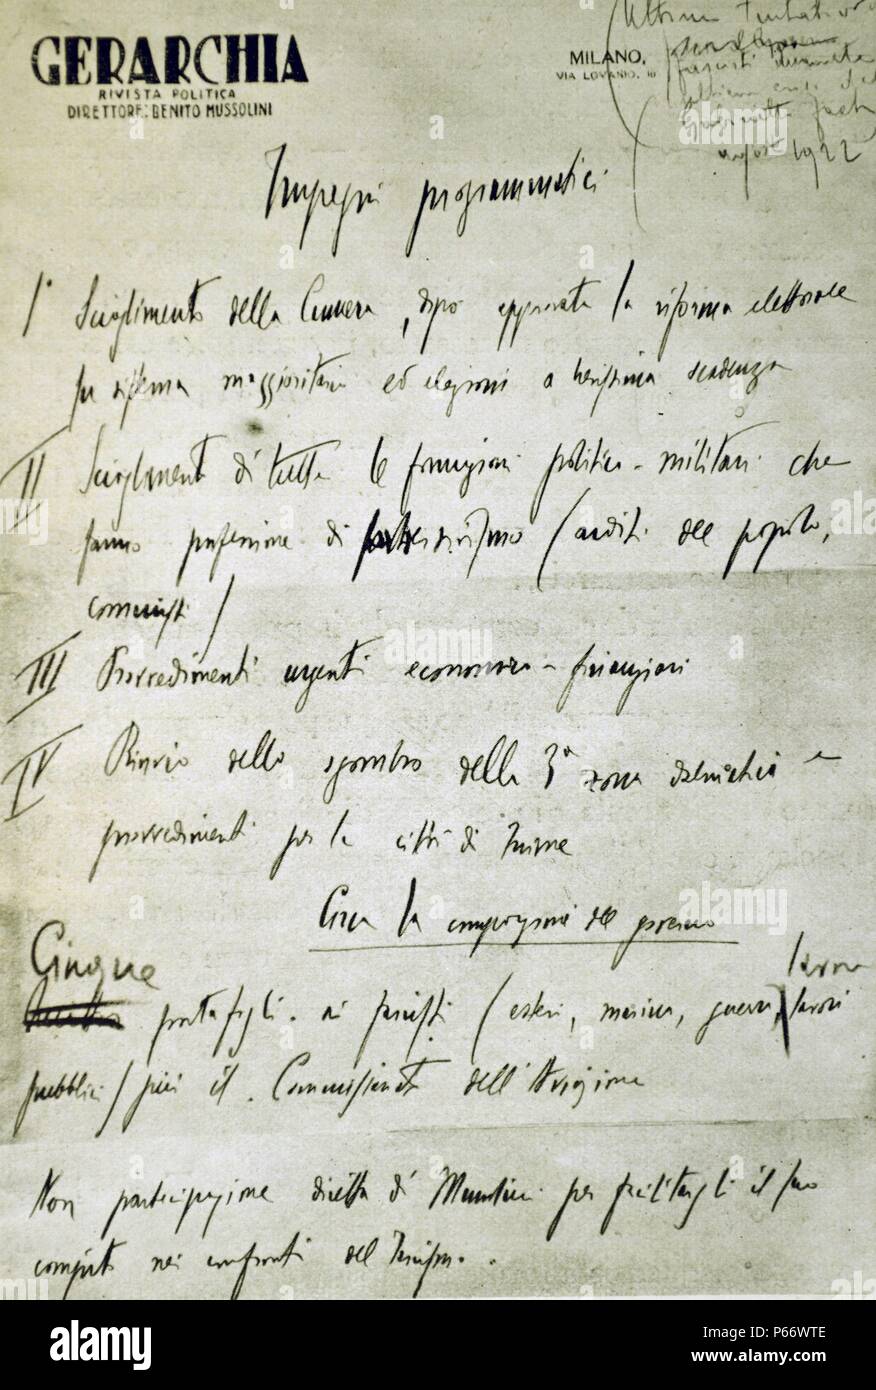 GERARCHIA
RIVISTA POLITICA
DIRETTORE: BENITO MUSSOLINI
MILANO,
VIA LOVANIO, 10
Ultimo tentativo
fascisti
agosto 1922
Impegni programmatici
1° Scioglimento della Camera, dopo approvata la riforma elettorale
su sistema maggioritario ed elezioni a brevissima scadenza
II Scioglimento di tutte le formazioni politico-militari che
fanno professione di sovversivismo (arditi del popolo,
comunisti)
III Provvedimenti urgenti economico-finanziari
IV Rinvio dello sgombro della 3ª zona dalmatica e
provvedimenti per la città di Fiume
Circa la composizione del governo
Cinque
lavoro
portafogli ai fascisti (esteri, marina, guerra, lavori
pubblici) più il Commissariato dell'Aviazione
Non partecipazione diretta di Mussolini per facilitargli il suo
compito nei confronti del Fascismo.
alamy
alamy stock photo
P66WTE
www.alamy.com